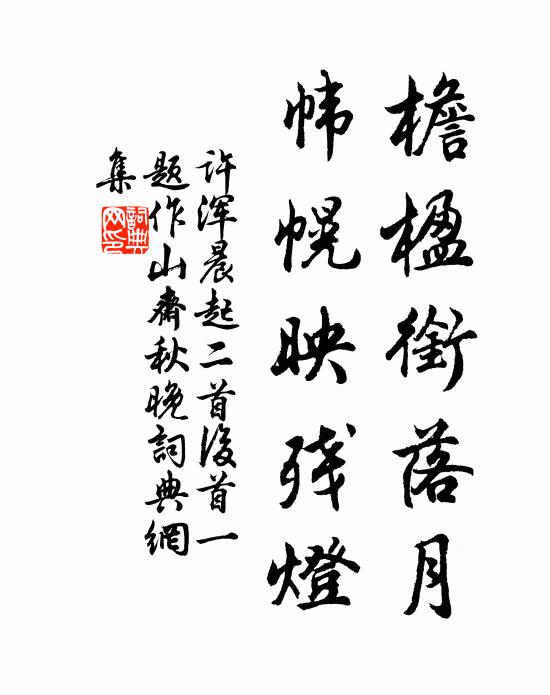 檐楹銜落月
幃幌映残燈
许渾晨起二首後首一
題作山齋秋晚詞典網
集
詞典
网印